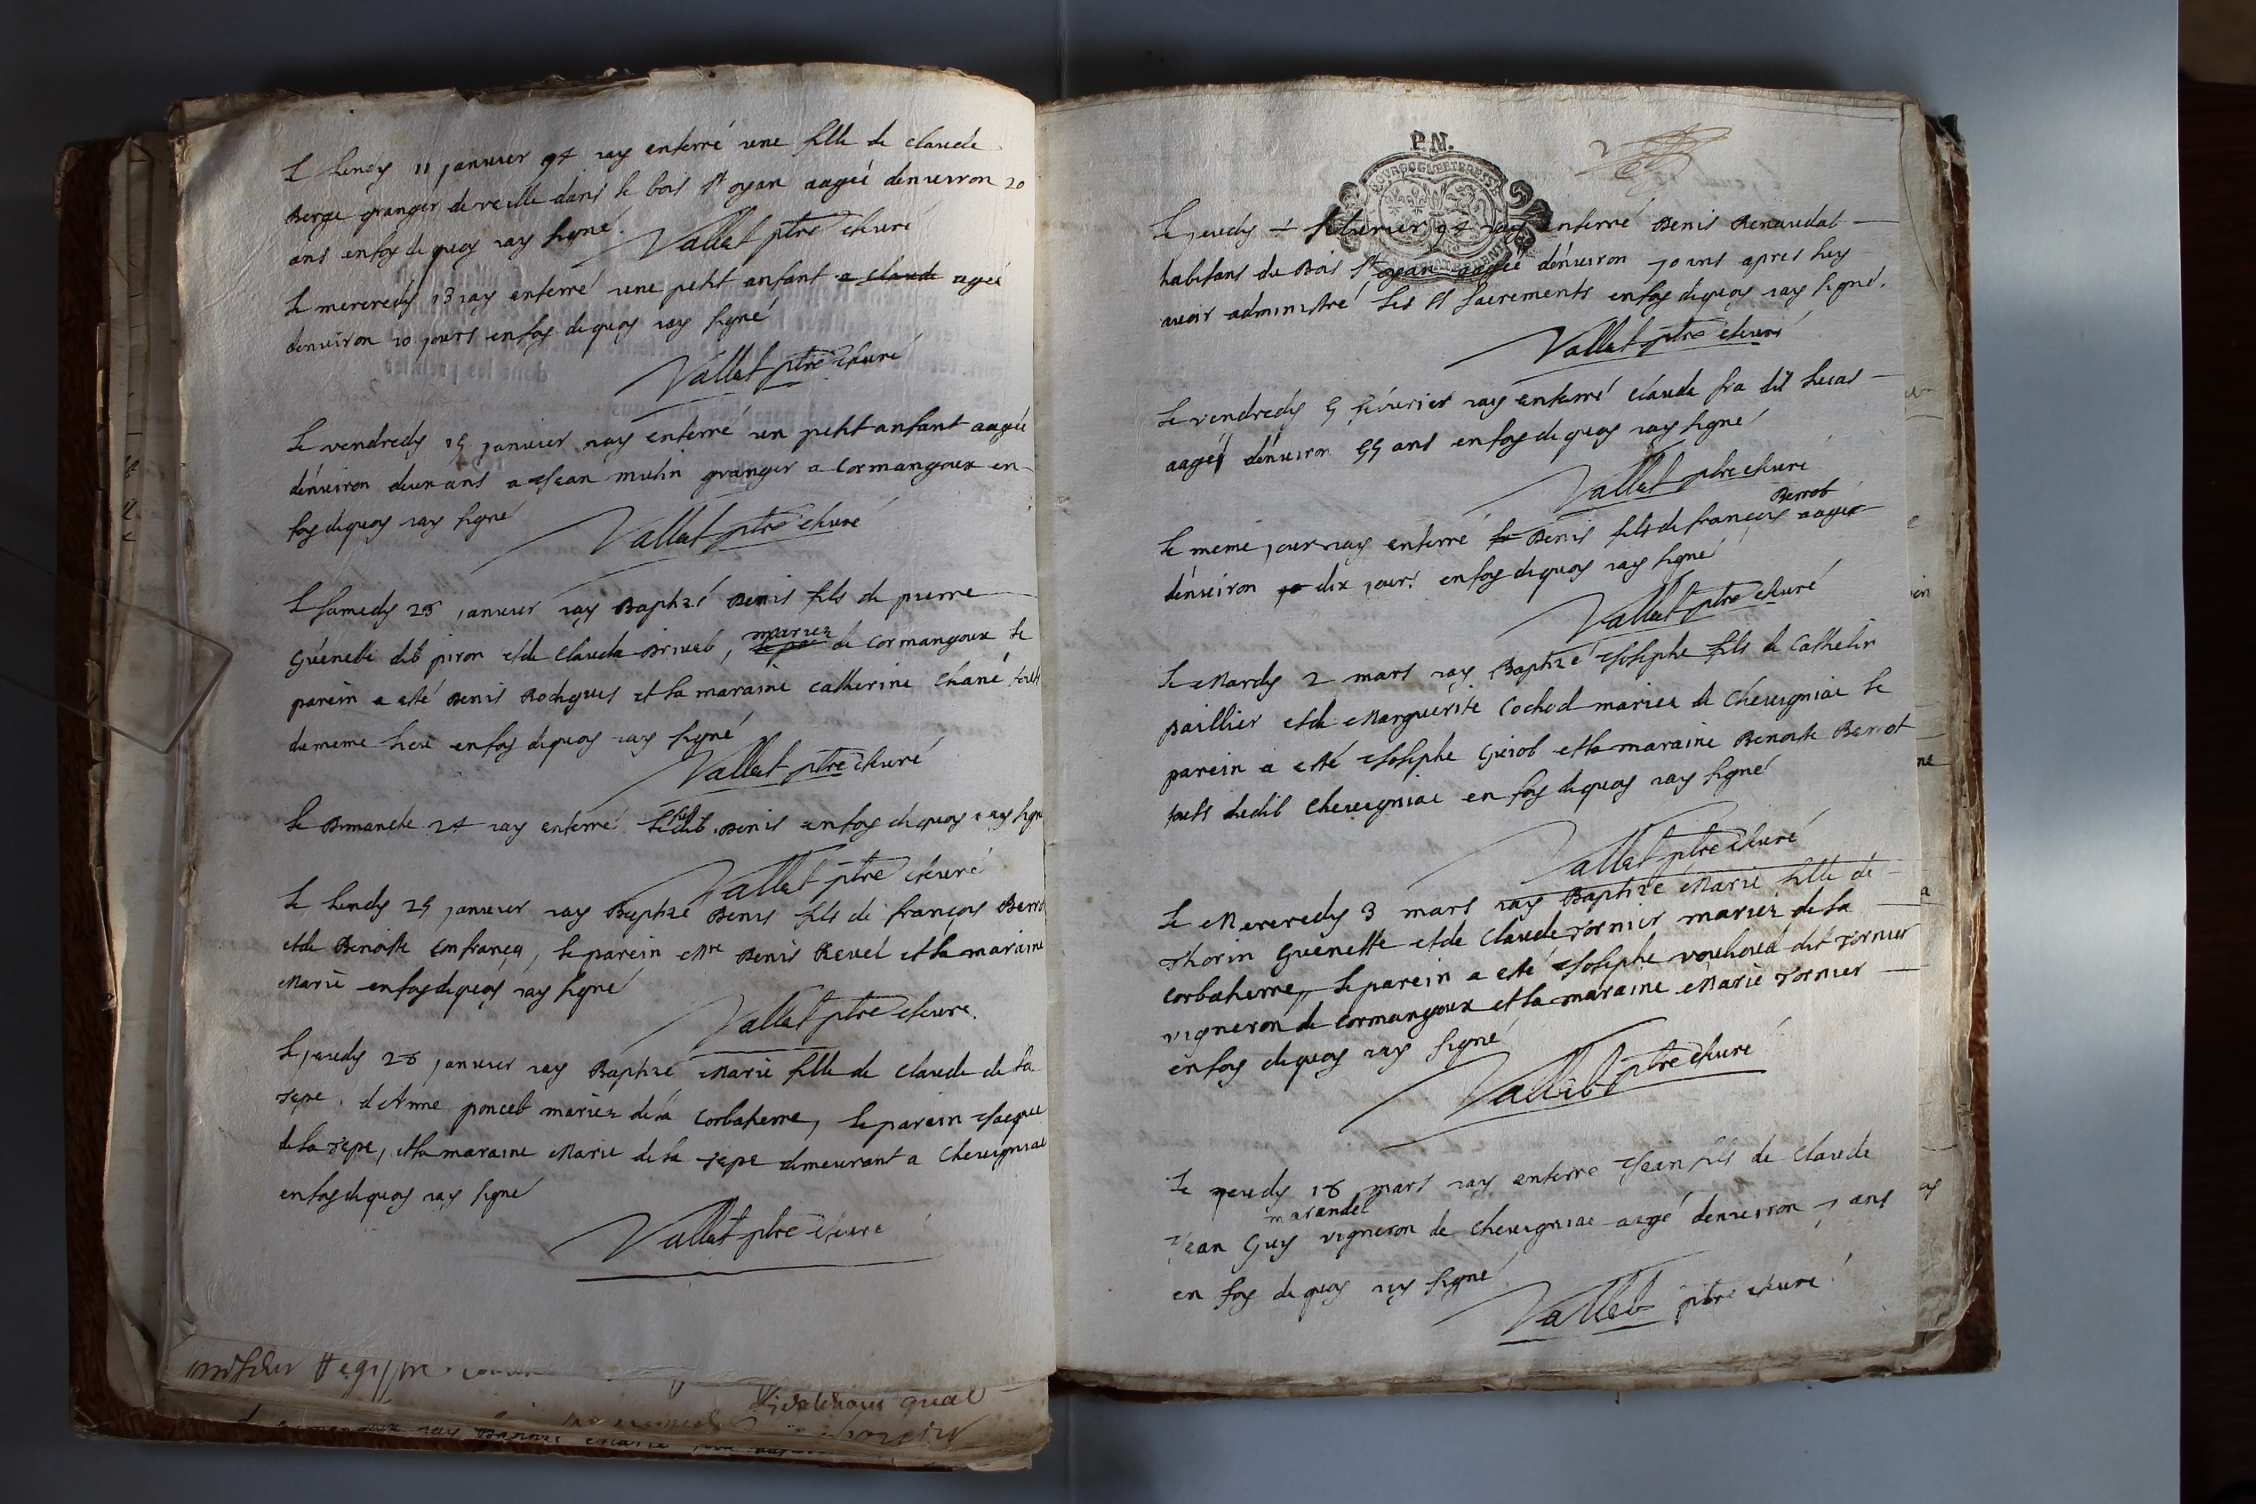 Le Lundy 11 janvier 94 iay enterré une fille de claude
Berge granger de veille dans le bois st oyan aagéé denuiron 20
ans en foy de quoy iay signé.
Vallet ptre curé
Le mercredy 13 iay enterré une petit anfant a claude agéé
denuiron 10 jours en foy de quoy iay signé
Vallet ptre curé
Le vendredy 15 janvier iay enterré un petit anfant aagéé
dénuiron deux ans a Jean mulin granger a Cormangoux en
foy de quoy iay signé
Vallet ptre curé
Le samedy 23 janvier iay Baptizé Denis fils de pierre
mariez
Guenette dit piron et de Clauda Brivet, de Cormangoux le
parein a esté Denis Rodigues et la maraine Catherine Chané touts
du meme lieu en foy de quoy iay signé
Vallet ptre curé
Le Dimanche 24 iay enterré ledit Denis en foy de quoy iay signé
Vallet ptre curé
Le Lundy 25 janvier iay Baptizé Denis fils de françois Berrot
et de Benoiste Emfrança, le parein Mre Denis Revel et la maraine
Marie en foy de quoy iay signé
Vallet ptre curé.
Le jeudy 28 janvier iay Baptizé Marie fille de claude de la
Tepe d'Anne poncet mariez de la Corbaterre, le parein Jacque
de la Tepe, et la maraine Marie de la Tepe demeurant a Cheuigniac
en foy de quoy iay signé
Vallet ptre curé
P.N.
Le jeudy 4 féburier 94 iay enterré Denis Renaudat
habitans du Bois st oyan aagéé dénuiron 70 ans apres luy
auoir administré les sts sacrements en foy de quoy iay signé.
Vallet ptre curé
Le vendredy 5 féburier iay enterré claude fra dit Lucas
aagéé dénuiron 55 ans en foy de quoy iay signé
Vallet ptre curé
Berrot
Le meme jour iay enterré Denis fils de françois aagéé
dénuiron dix jours en foy de quoy iay signé
Vallet ptre curé
Le Mardy 2 mars iay Baptizé Josephe fils de Cathelin
paillier et de Marguerite Cochod mariez de Cheuigniac le
parein a esté Josephe Guiot et la maraine Benoiste Berrot
touts dudit Cheuigniac en foy de quoy iay signé
Vallet ptre curé
Le Mercredy 3 mars iay Baptizé Marie fille de
Thorin Guenette et de Claude Tornier mariez de la
Corbaterre, le parein a esté Josephe vouhoud dit Tornier
vigneron de Cormangoux et la maraine Marie Tornier
en foy de quoy iay signé
Vallet ptre curé
Le jeudy 18 mars iay enterré Jean fils de claude
marandet
Jean Guy vigneron de Cheuigniac aagé denuiron 7 ans
en foy de quoy iay signé
Vallet ptre curé